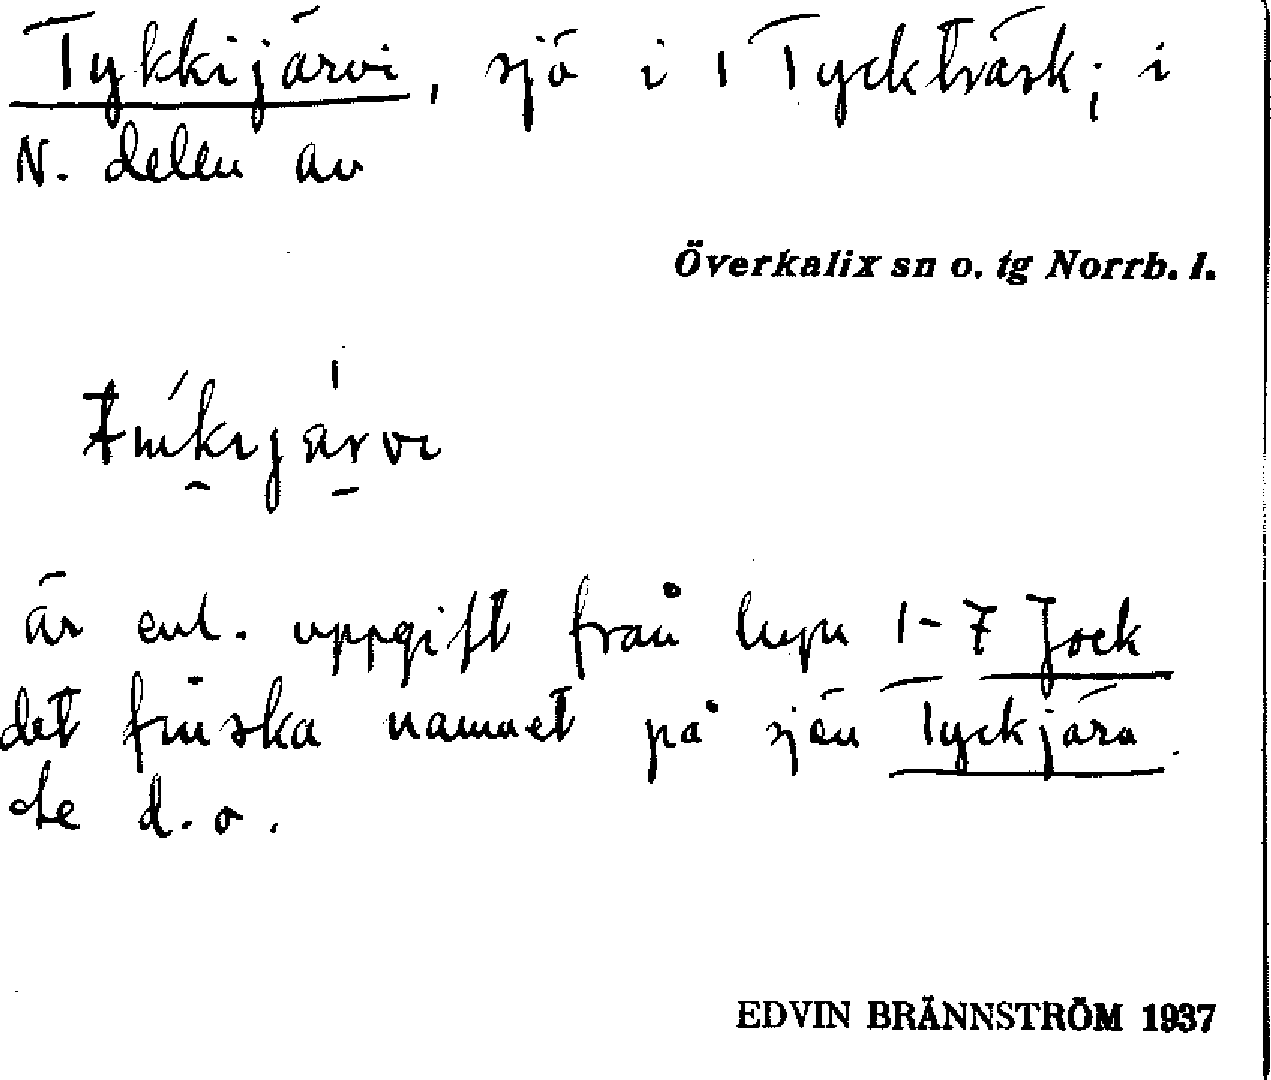 Tykkijärvi, sjö i 1 Tyckträsk; i
N. delen av
Överkalix sn o. tg Norrb. l.
är enl. uppgift från 1-7 Jock
det finska namnet på sjön Tyckjärv
de d.o.
EDVIN BRÄNNSTRÖM 1937